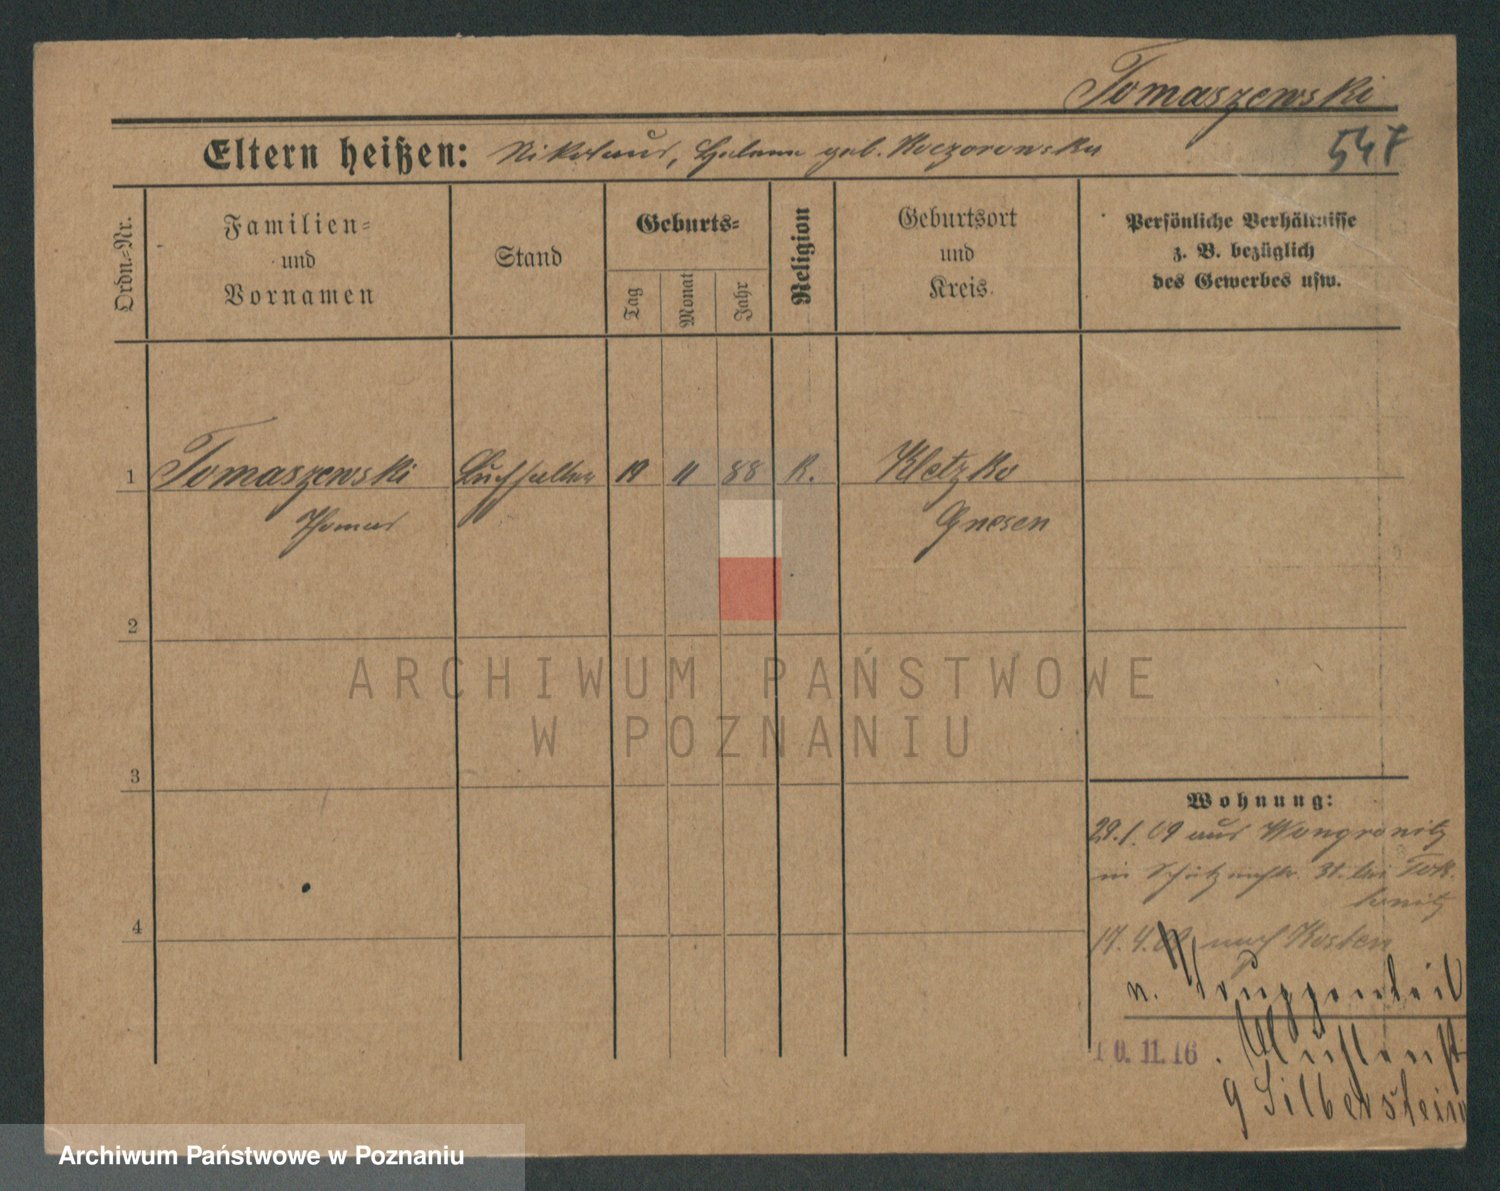 Tomaszewski
Eltern heißen: Nikolaus, Helene geb. Koczorowska
547
Ordn.=Nr.
Familien=
und
Vornamen
Stand
Geburts=
Tag
Monat
Jahr
Religion
Geburtsort
und
Kreis.
Persönliche Verhältnisse
z. B. bezüglich
des Gewerbes usw.
1 Tomaszewski Buchhalter 19 11 88 K. Kletzko
Thomas Gnesen
2
3
4
Wohnung:
29.1.09 aus Wongrowitz
in Schützenstr. 31. bei
17.4.09 nach Kosten
n.
10.11.16.
9 Silberstein
ARCHIWUM PAŃSTWOWE
W POZNANIU
Archiwum Państwowe w Poznaniu